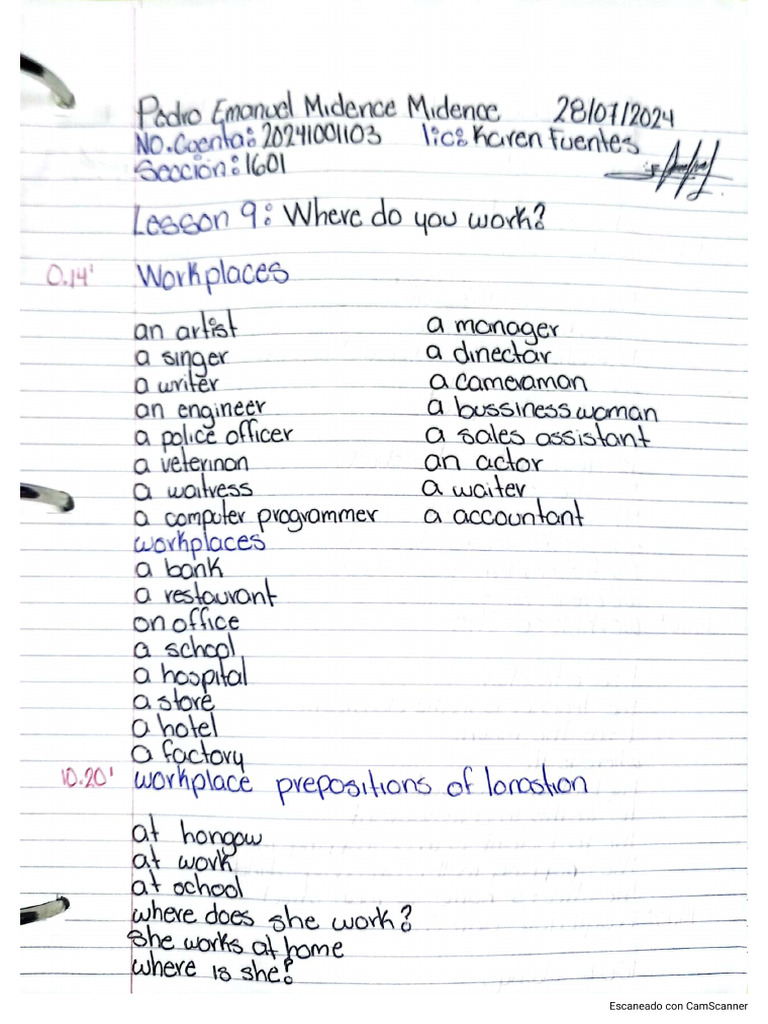 Pedro Emanuel Midence Midence 28/07/2024
NO.Cuenta: 20241001103 lic: Karen Fuentes
Sección: 1601
Lesson 9: Where do you work?
0.14' Workplaces
an artist a manager
a singer a dinectar
a writer a cameraman
an engineer a bussiness woman
a police officer a sales assistant
a veterinan an actor
a waitress a waiter
a computer programmer a accountant
workplaces
a bank
a restaurant
on office
a school
a hospital
a store
a hotel
a factory
10.20' workplace prepositions of lonastion
at hongow
at work
at school
where does she work?
she works at home
where is she?
Escaneado con CamScanner